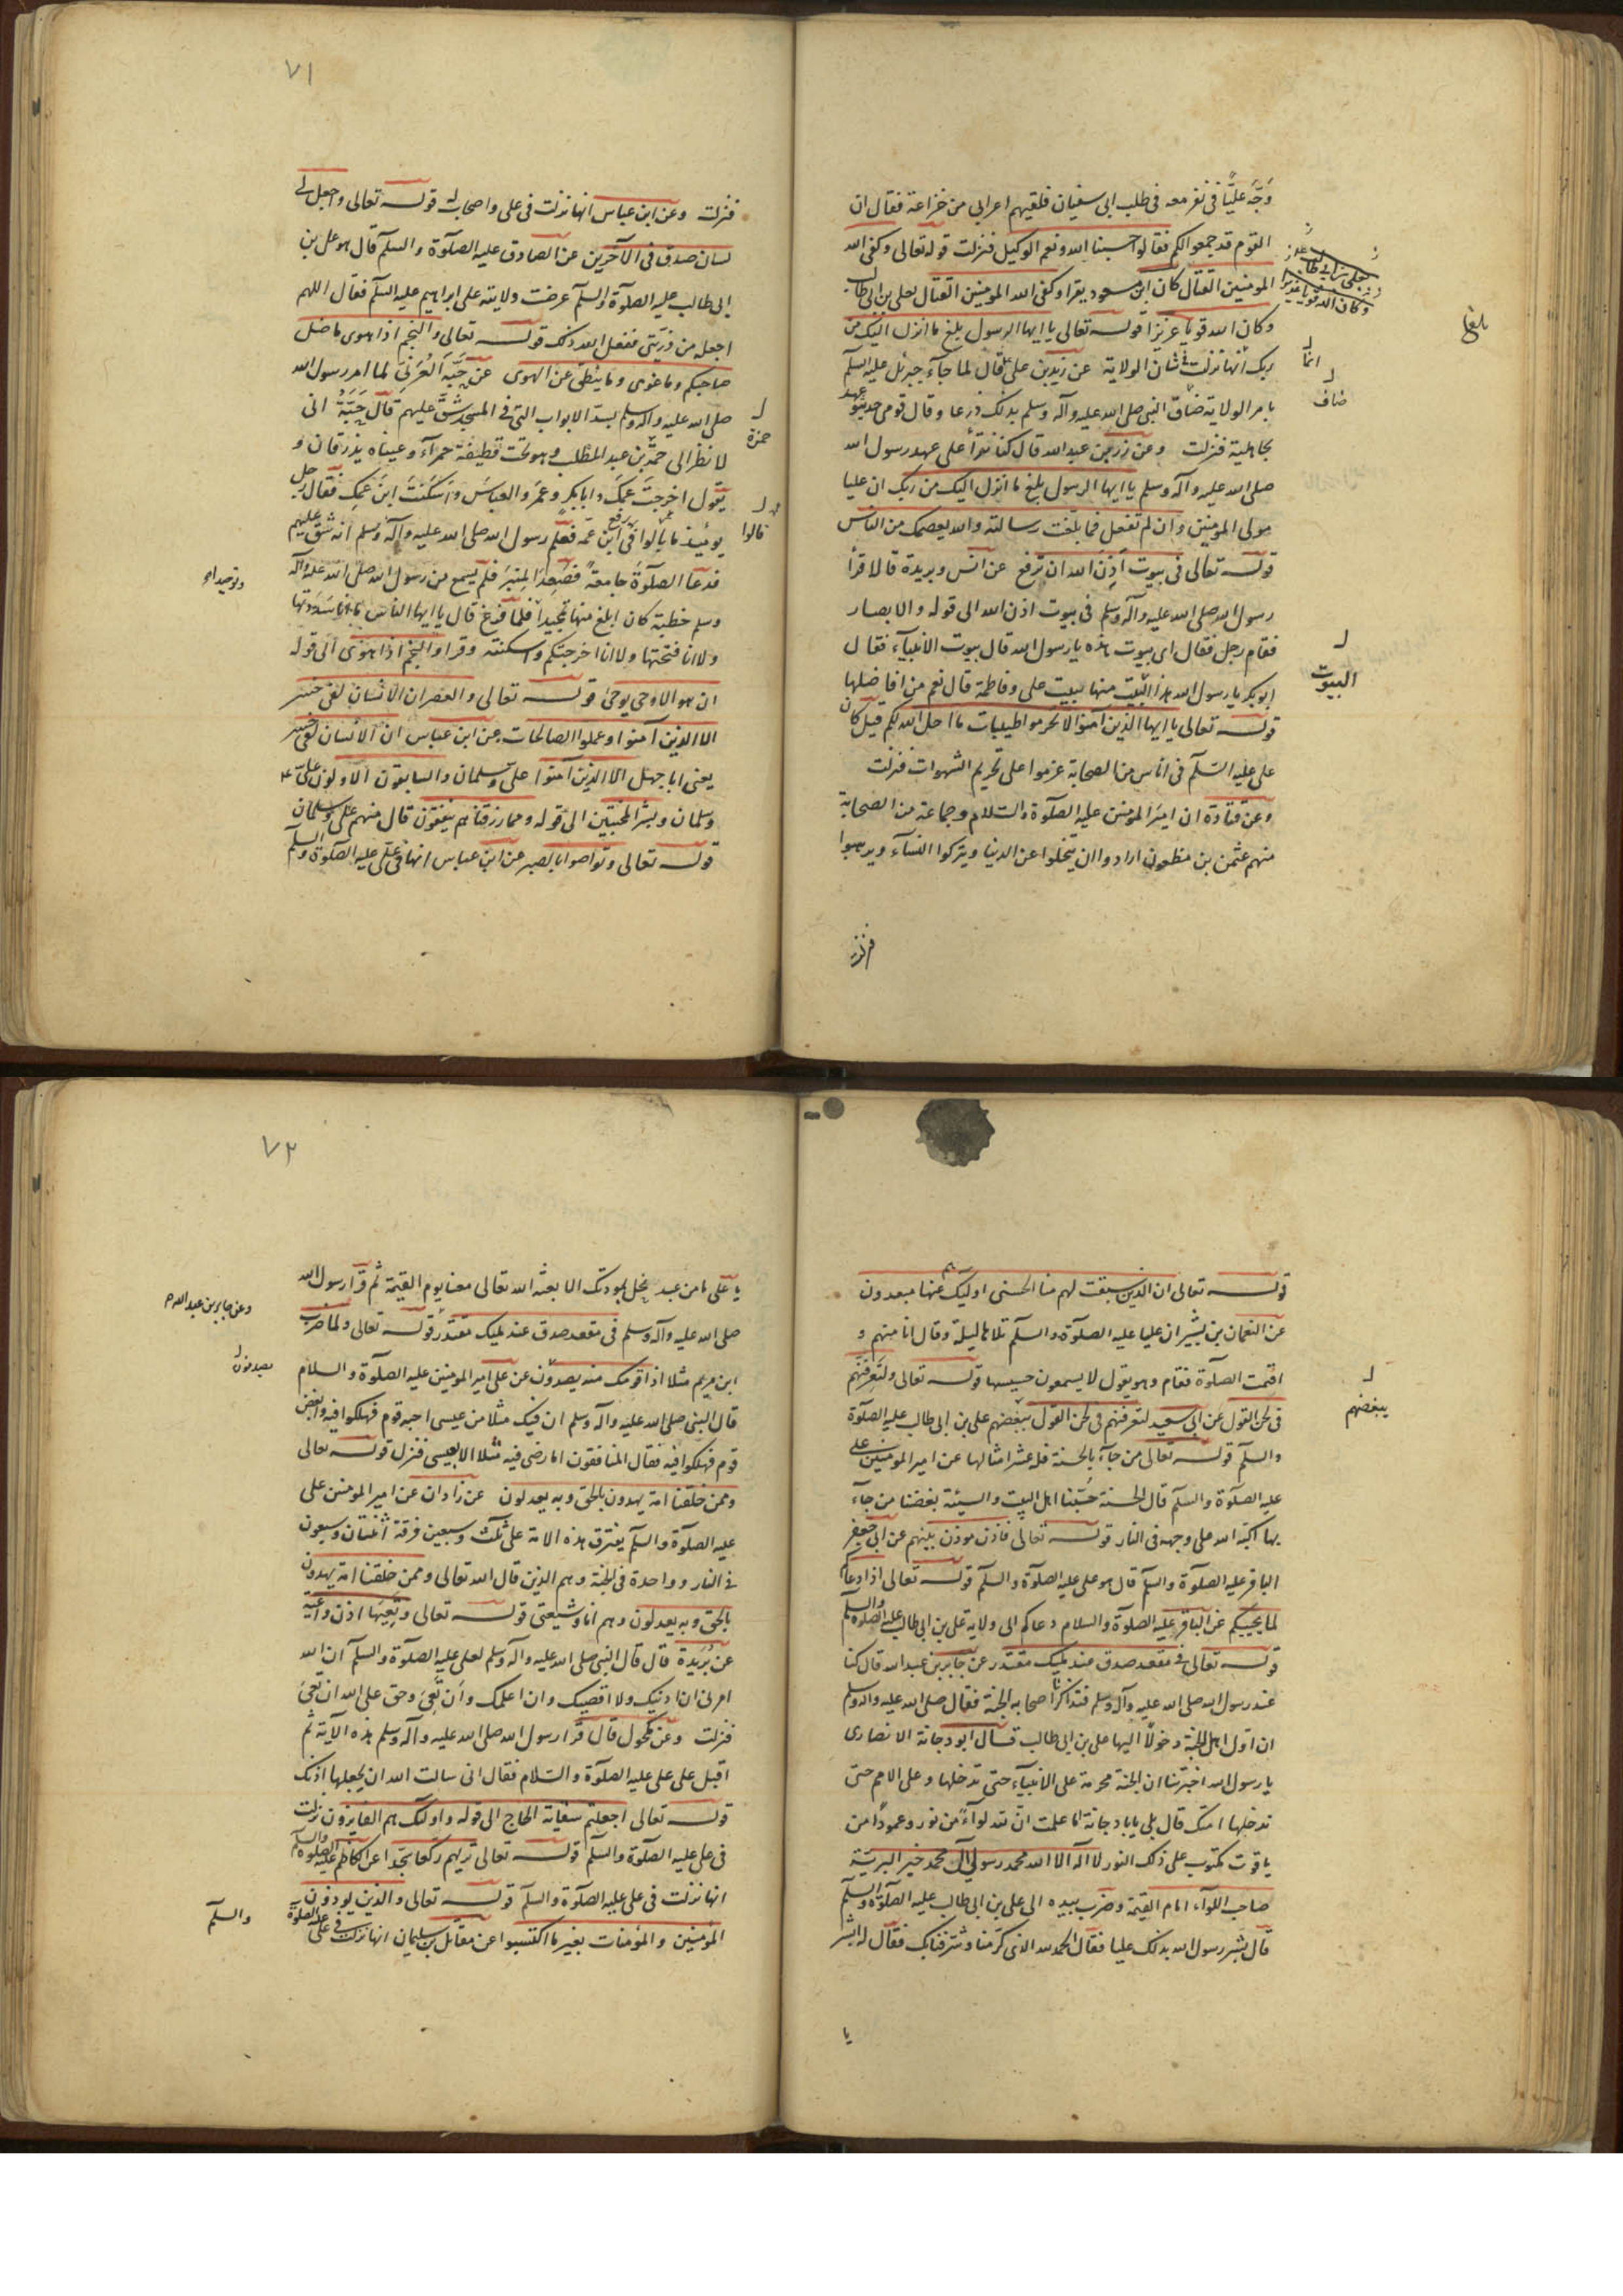 وَجَّه عَليًّا فى نفر معه فى طلب ابى سفيان فلقيهم اعرابى من خزاعة فقال ان
القوم قد جمعوا لكم فقالوا حسبنا الله ونعم الوكيل فنزلت قوله تعالى وكفى الله
المومنين القتال كان ابن مسعود يقرا وكفى الله المومنين القتال بعلى بن ابى طالب
وكان الله قويا عزيزا قوله تعالى يا ايها الرسول بلغ ما انزل اليك من
ربك انها نزلت فى شان الولاية عن زيد بن على قال لما جآء جبرئل عليه السلم
بامر الولاية ضاق النبى صلى الله عليه وآله وسلم بذلك ذرعا وقال قومى حديثو عهد
بجاهلية فنزلت وعن زر بن عبد الله قال كنا نقرأ على عهد رسول الله
صلى الله عليه وآله وسلم يا ايها الرسول بلغ ما انزل اليك من ربك ان عليا
مولى المومنين وان لم تفعل فما بلغت رسالته والله يعصمك من الناس
قوله تعالى فى بيوت اذن الله ان ترفع عن انس وبريدة قالا قرأ
رسول الله صلى الله عليه وآله وسلم فى بيوت اذن الله الى قوله والابصار
فقام رجل فقال اى بيوت هذه يا رسول الله قال بيوت الانبيآء فقال
ابو بكر يا رسول الله هذا البيت منها لبيت على وفاطمة قال نعم من افاضلها
قوله تعالى يا ايها الذين آمنوا لا تحرموا طيبات ما احل الله لكم قيل كان
على عليه السّلم فى اناس من الصحابة عزموا على تحريم الشهوات فنزلت
وعن قتادة ان امير المومنين عليه الصلوة والسّلام وجماعة من الصحابة
منهم عثمن بن مظعون ارادوا ان يتخلوا عن الدنيا ويتركوا النسآء ويرهبوا
بلغ
انما
ضاق
البيوت
فنزلت
٧١
فنزلت وعن ابن عباس انها نزلت فى على واصحابه قوله تعالى واجعل لى
لسان صدق فى الآخرين عن الصادق عليه الصلوة والسلم قال هو على بن
ابى طالب عليه الصلوة والسلم عرضت ولايته على ابراهيم عليه السلم فقال اللهم
اجعله من ذريتى ففعل الله ذلك قوله تعالى والنجم اذا هوى ما ضل
صاحبكم وما غوى وما ينطق عن الهوى عن حَبَّة العُرَنى لما امر رسول الله
صلى الله عليه وآله وسلم بسد الابواب التى فى المسجد شقّ عليهم قال حبّة انى
لانظر الى حمزة بن عبد المطلب وهو تحت قطيفة حمرآء وعيناه يذرفان و
يقول اخرجت عمك وابا بكر وعمر والعباس واسكنت ابن عمك فقال رجل
يومئذ ما يألوا فى رفع ابن عمه فعلم رسول الله صلى الله عليه وآله وسلم انه شق عليهم
فدعا الصلوة جامعة فصعد المنبر فلم يسمع من رسول الله صلى الله عليه وآله
وسلم خطبة كان ابلغ منها تمجيدا فلما فرغ قال يا ايها الناس ما انا سددتها
ولا انا فتحتها ولا انا اخرجتكم واسكنته وقرا والنجم اذا هوى الى قوله
ان هو الا وحى يوحى قوله تعالى والعصر ان الانسان لفى خسر
الا الذين آمنوا وعملوا الصالحات عن ابن عباس ان الانسان لفى خسر
يعنى ابا جهل الا الذين آمنوا على وسلمان والسابقون الاولون على
وسلمان وبشر المخبتين الى قوله ومما رزقناهم ينفقون قال منهم على وسلمان
قوله تعالى وتواصوا بالصبر عن ابن عباس انها فى على عليه الصلوة والسلم
حمزة
قالوا
وتوحيدا
قوله تعالى ان الذين سبقت لهم منا الحسنى اولئك عنها مبعدون
عن النعمان بن بشير ان عليا عليه الصلوة والسلم تلاها ليلة وقال انا منهم و
اقيمت الصلوة فقام وهو يقول لا يسمعون حسيسها قوله تعالى ولتعرفنهم
فى لحن القول عن ابى سعيد لتعرفنهم فى لحن القول ببغضهم على بن ابى طالب عليه الصلوة
والسلم قوله تعالى من جآء بالحسنة فله عشر امثالها عن امير المومنين على
عليه الصلوة والسلم قال الحسنة حبّنا اهل البيت والسيئة بغضنا من جآء
بها اكبّه الله على وجهه فى النار قوله تعالى فاذن موذن بينهم عن ابى جعفر
الباقر عليه الصلوة والسلم قال هو على عليه الصلوة والسلم قوله تعالى اذا دعاكم
لما يحييكم عن الباقر عليه الصلوة والسلام دعاكم الى ولاية على بن ابى طالب عليه الصلوة والسلم
قوله تعالى فى مقعد صدق عند مليك مقتدر عن جابر بن عبد الله قال كنا
عند رسول الله صلى الله عليه وآله وسلم فتذاكر اصحابه الجنة فقال صلى الله عليه وآله وسلم
ان اول اهل الجنة دخولا اليها على بن ابى طالب قال ابو دجانة الانصارى
يا رسول الله اخبرتنا ان الجنة محرمة على الانبيآء حتى تدخلها وعلى الامم حتى
تدخلها امتك قال بلى يا ابا دجانة اما علمت ان لله لوآء من نور وعمودا من
ياقوت مكتوب على ذلك النور لا اله الا الله محمد رسولى آل محمد خير البرية
صاحب اللوآء امام القيمة وضرب بيده الى على بن ابى طالب عليه الصلوة والسلم
قال بشر رسول الله بذلك عليا فقال الحمد لله الذى كرّمنا وشرفنا بك فقال له ابشر
ببغضهم
يا
٧٢
يا على ما من عبد ينحل بمودتك الا بعثه الله تعالى معنا يوم القيمة ثم قرأ رسول الله
صلى الله عليه وآله وسلم فى مقعد صدق عند مليك مقتدر قوله تعالى ولما ضرب
ابن مريم مثلا اذا قومك منه يصدون عن على امير المومنين عليه الصلوة والسلام
قال النبى صلى الله عليه وآله وسلم ان فيك مثلا من عيسى احبه قوم فهلكوا فيه وابغض
قوم فهلكوا فيه فقال المنافقون اما رضى فيه مثلا الا لعيسى فنزل قوله تعالى
وممن خلقنا امة يهدون بالحق وبه يعدلون عن زاذان عن امير المومنين على
عليه الصلوة والسلم يفترق هذه الامة على ثلث وسبعين فرقة اثنتان وسبعون
فى النار وواحدة فى الجنة وهم الذين قال الله تعالى وممن خلقنا امة يهدون
بالحق وبه يعدلون وهم انا وشيعتى قوله تعالى وتعيها اذن واعية
عن بُرَيدة قال قال النبى صلى الله عليه وآله وسلم لعلى عليه الصلوة والسلم ان الله
امرنى ان ادنيك ولا اقصيك وان اعلمك وان تعى وحق على الله ان تعى
فنزلت وعن مكحول قال قرأ رسول الله صلى الله عليه وآله وسلم هذه الآية ثم
اقبل على على عليه الصلوة والسّلام فقال انى سالت الله ان يجعلها اذنك
قوله تعالى اجعلتم سقاية الحاج الى قوله واولئك هم الفايزون نزلت
فى على عليه الصلوة والسلم قوله تعالى تريهم ركعا سجدا عن الكاظم عليه الصلوة والسلم
انها نزلت فى على عليه الصلوة والسلم قوله تعالى والذين يوذون
المؤمنين والمؤمنات بغير ما اكتسبوا عن مقاتل بن سليمان انها نزلت فى على عليه الصلوة
وعن جابر بن عبد الله
يصدون
والسلم